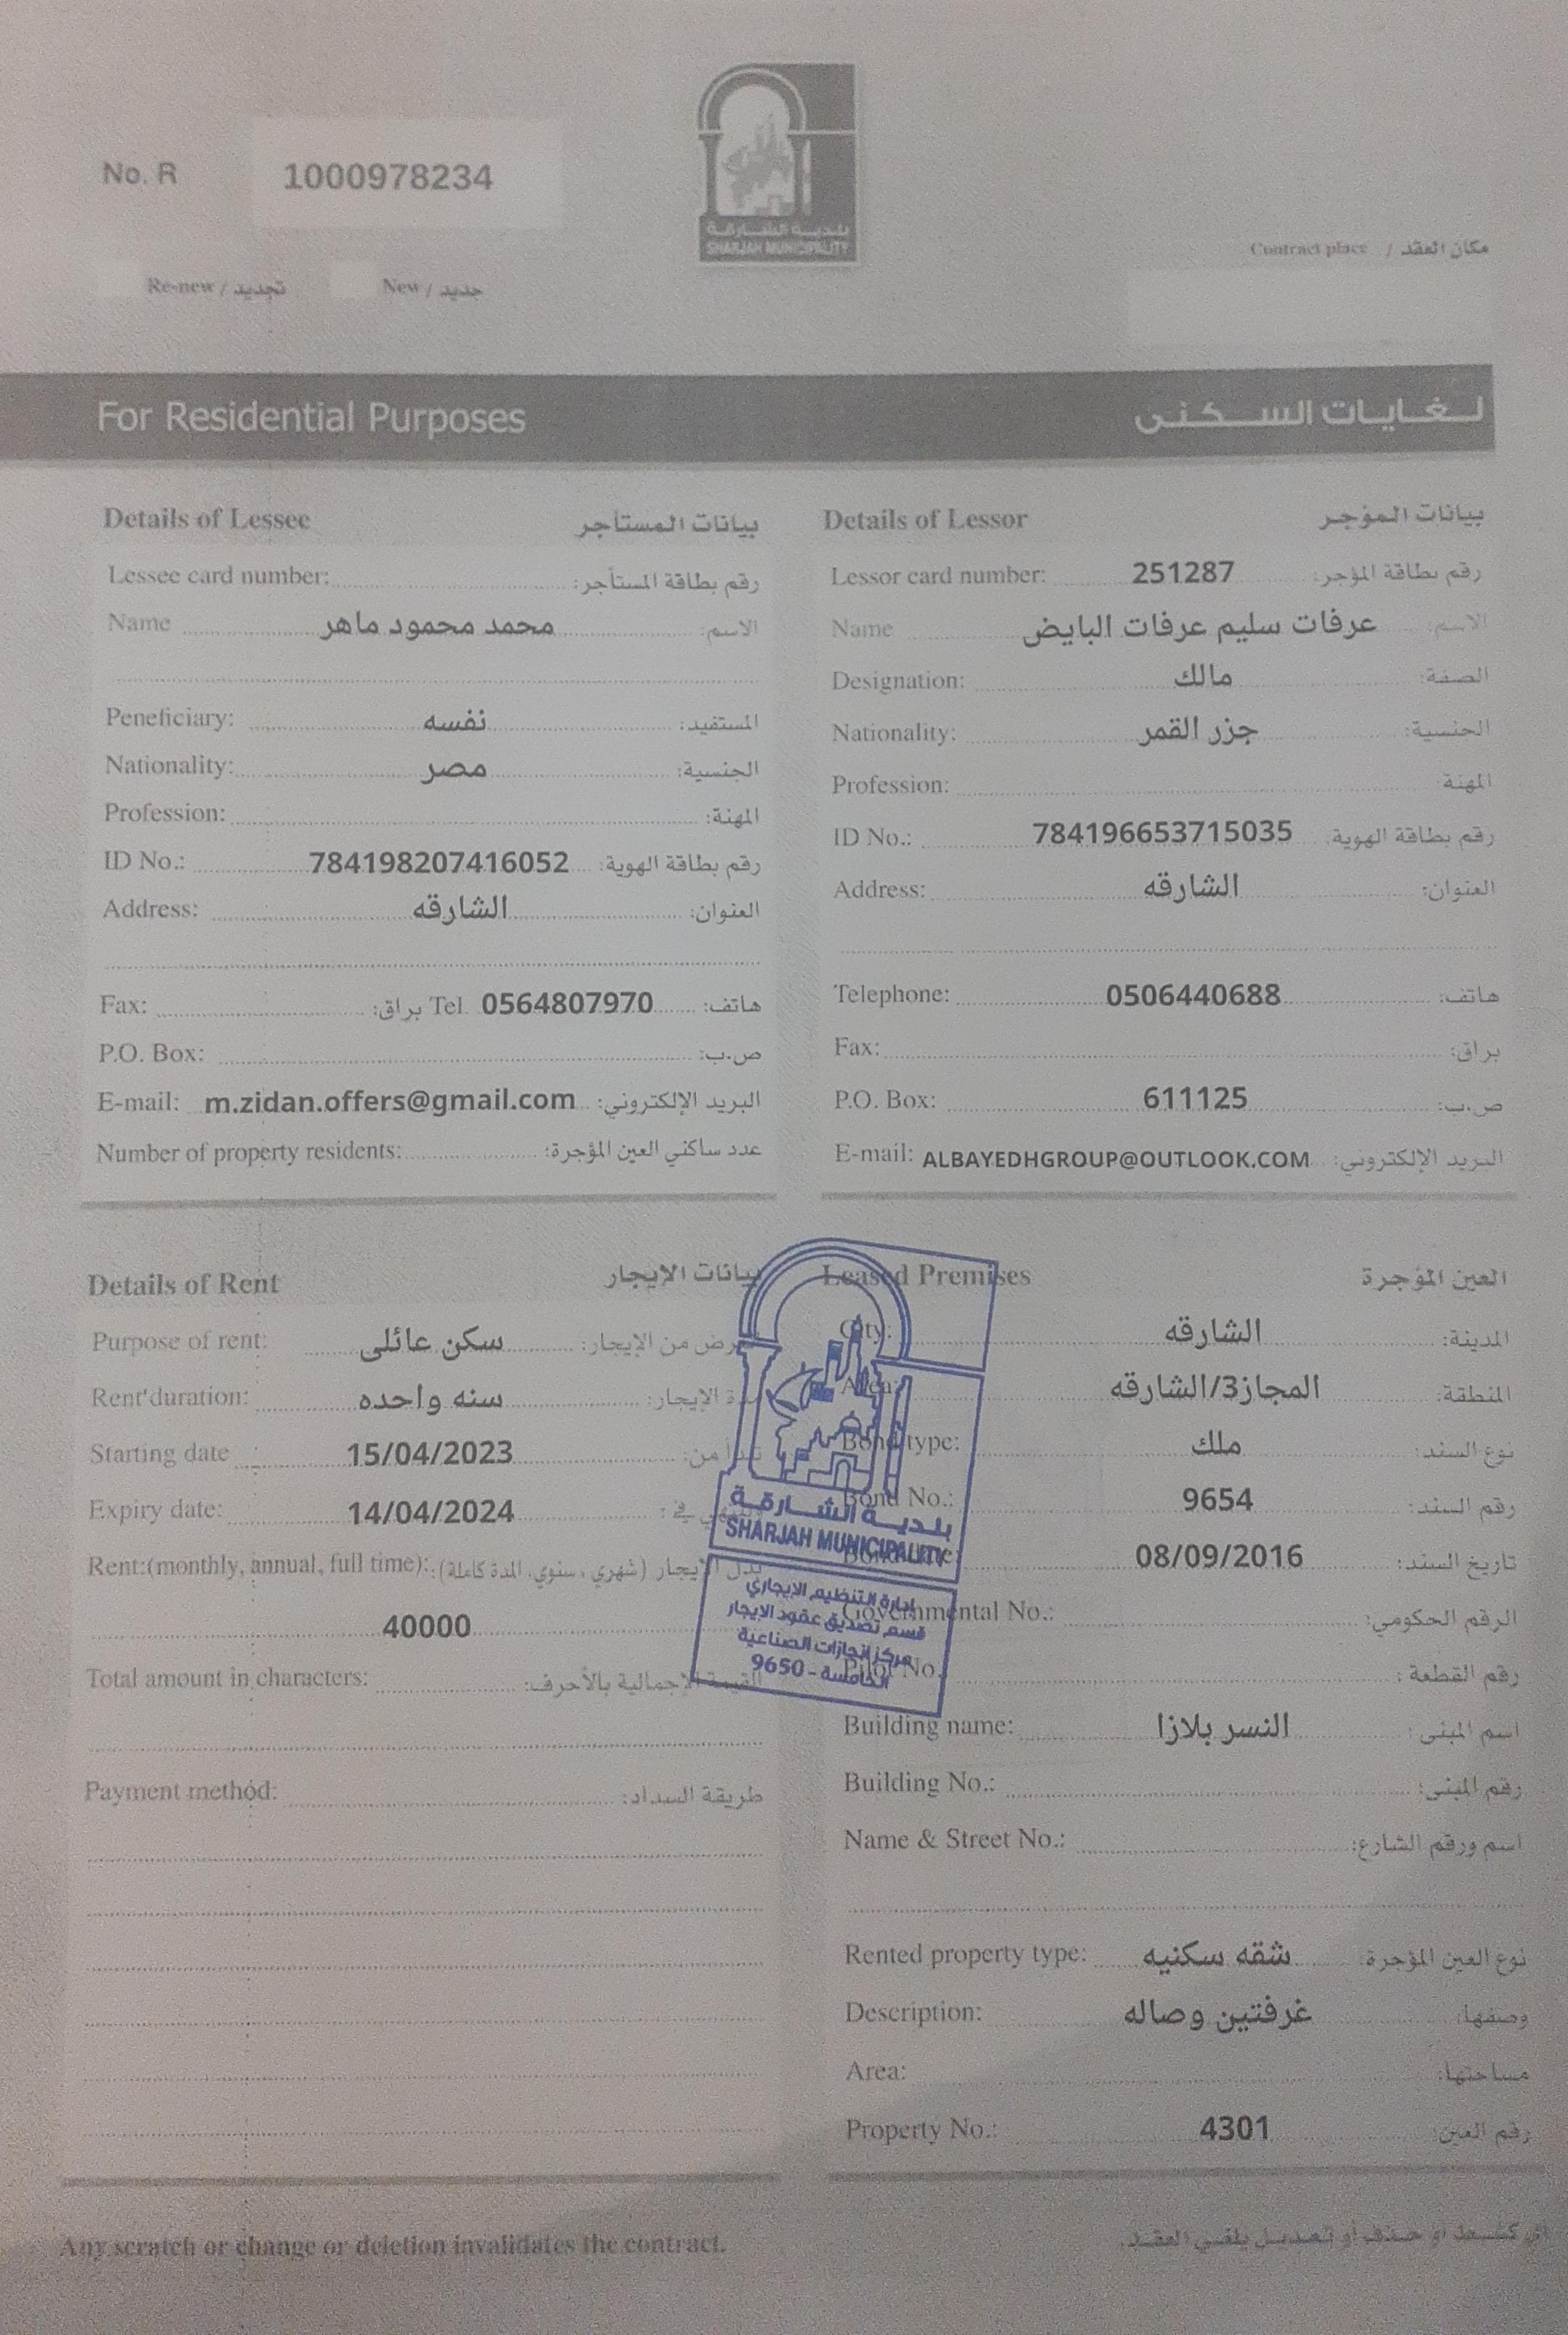 No. R 1000978234
بلدية الشارقة
SHARJAH MUNICIPALITY
Contract place / مكان العقد
Re-new / تجديد New / جديد
For Residential Purposes لغايات السكنى
Details of Lessee بيانات المستأجر
Lessee card number: رقم بطاقة المستأجر:
Name محمد محمود ماهر الاسم:
Peneficiary: نفسه المستفيد:
Nationality: مصر الجنسية:
Profession: المهنة:
ID No.: 784198207416052 رقم بطاقة الهوية:
Address: الشارقه العنوان:
Fax: براق: Tel. 0564807970 هاتف:
P.O. Box: ص.ب:
E-mail: m.zidan.offers@gmail.com البريد الإلكتروني:
Number of property residents: عدد ساكني العين المؤجرة:
Details of Lessor بيانات المؤجر
Lessor card number: 251287 رقم بطاقة المؤجر:
Name عرفات سليم عرفات البايض الاسم:
Designation: مالك الصفة:
Nationality: جزر القمر الجنسية:
Profession: المهنة:
ID No.: 784196653715035 رقم بطاقة الهوية:
Address: الشارقه العنوان:
Telephone: 0506440688 هاتف:
Fax: براق:
P.O. Box: 611125 ص.ب:
E-mail: ALBAYEDHGROUP@OUTLOOK.COM البريد الإلكتروني:
Details of Rent بيانات الإيجار
Purpose of rent: سكن عائلى الغرض من الإيجار:
Rent'duration: سنه واحده مدة الإيجار:
Starting date 15/04/2023 تبدأ من:
Expiry date: 14/04/2024 وتنتهي في:
Rent:(monthly, annual, full time): بدل الإيجار (شهري، سنوي، المدة كاملة):
40000
Total amount in characters: القيمة الإجمالية بالأحرف:
Payment method: طريقة السداد:
Leased Premises العين المؤجرة
City: الشارقه المدينة:
Area: المجاز3/الشارقه المنطقة:
Bond type: ملك نوع السند:
Bond No.: 9654 رقم السند:
08/09/2016 تاريخ السند:
Governmental No.: الرقم الحكومي:
Pilot No. رقم القطعة:
Building name: النسر بلازا اسم المبنى:
Building No.: رقم المبنى:
Name & Street No.: اسم ورقم الشارع:
Rented property type: شقه سكنيه نوع العين المؤجرة:
Description: غرفتين وصاله وصفها:
Area: مساحتها:
Property No.: 4301 رقم العين:
بلدية الشارقة
SHARJAH MUNICIPALITY
إدارة التنظيم الايجاري
قسم تصديق عقود الايجار
مركز إنجازات الصناعية
الخامسة - 9650
Any scratch or change or deletion invalidates the contract. أي كشط او حذف أو تعديل يلغي العقد.